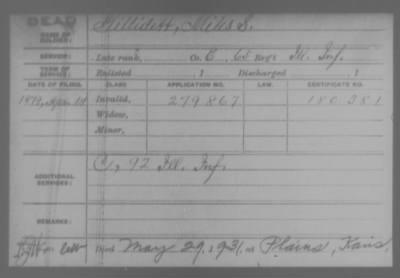 DEAD
NAME OF SOLDIER: Miles S.
SERVICE: Late rank, Co. C, 65 Reg't Ill. Inf.
TERM OF SERVICE: Enlisted , 1 Discharged , 1
DATE OF FILING. CLASS APPLICATION NO. LAW. CERTIFICATE NO.
Invalid, 279867 180.381
Widow,
Minor,
ADDITIONAL SERVICES: C, 92 Ill. Inf.
REMARKS:
Died May 29, 1931, at Plains, Kans.